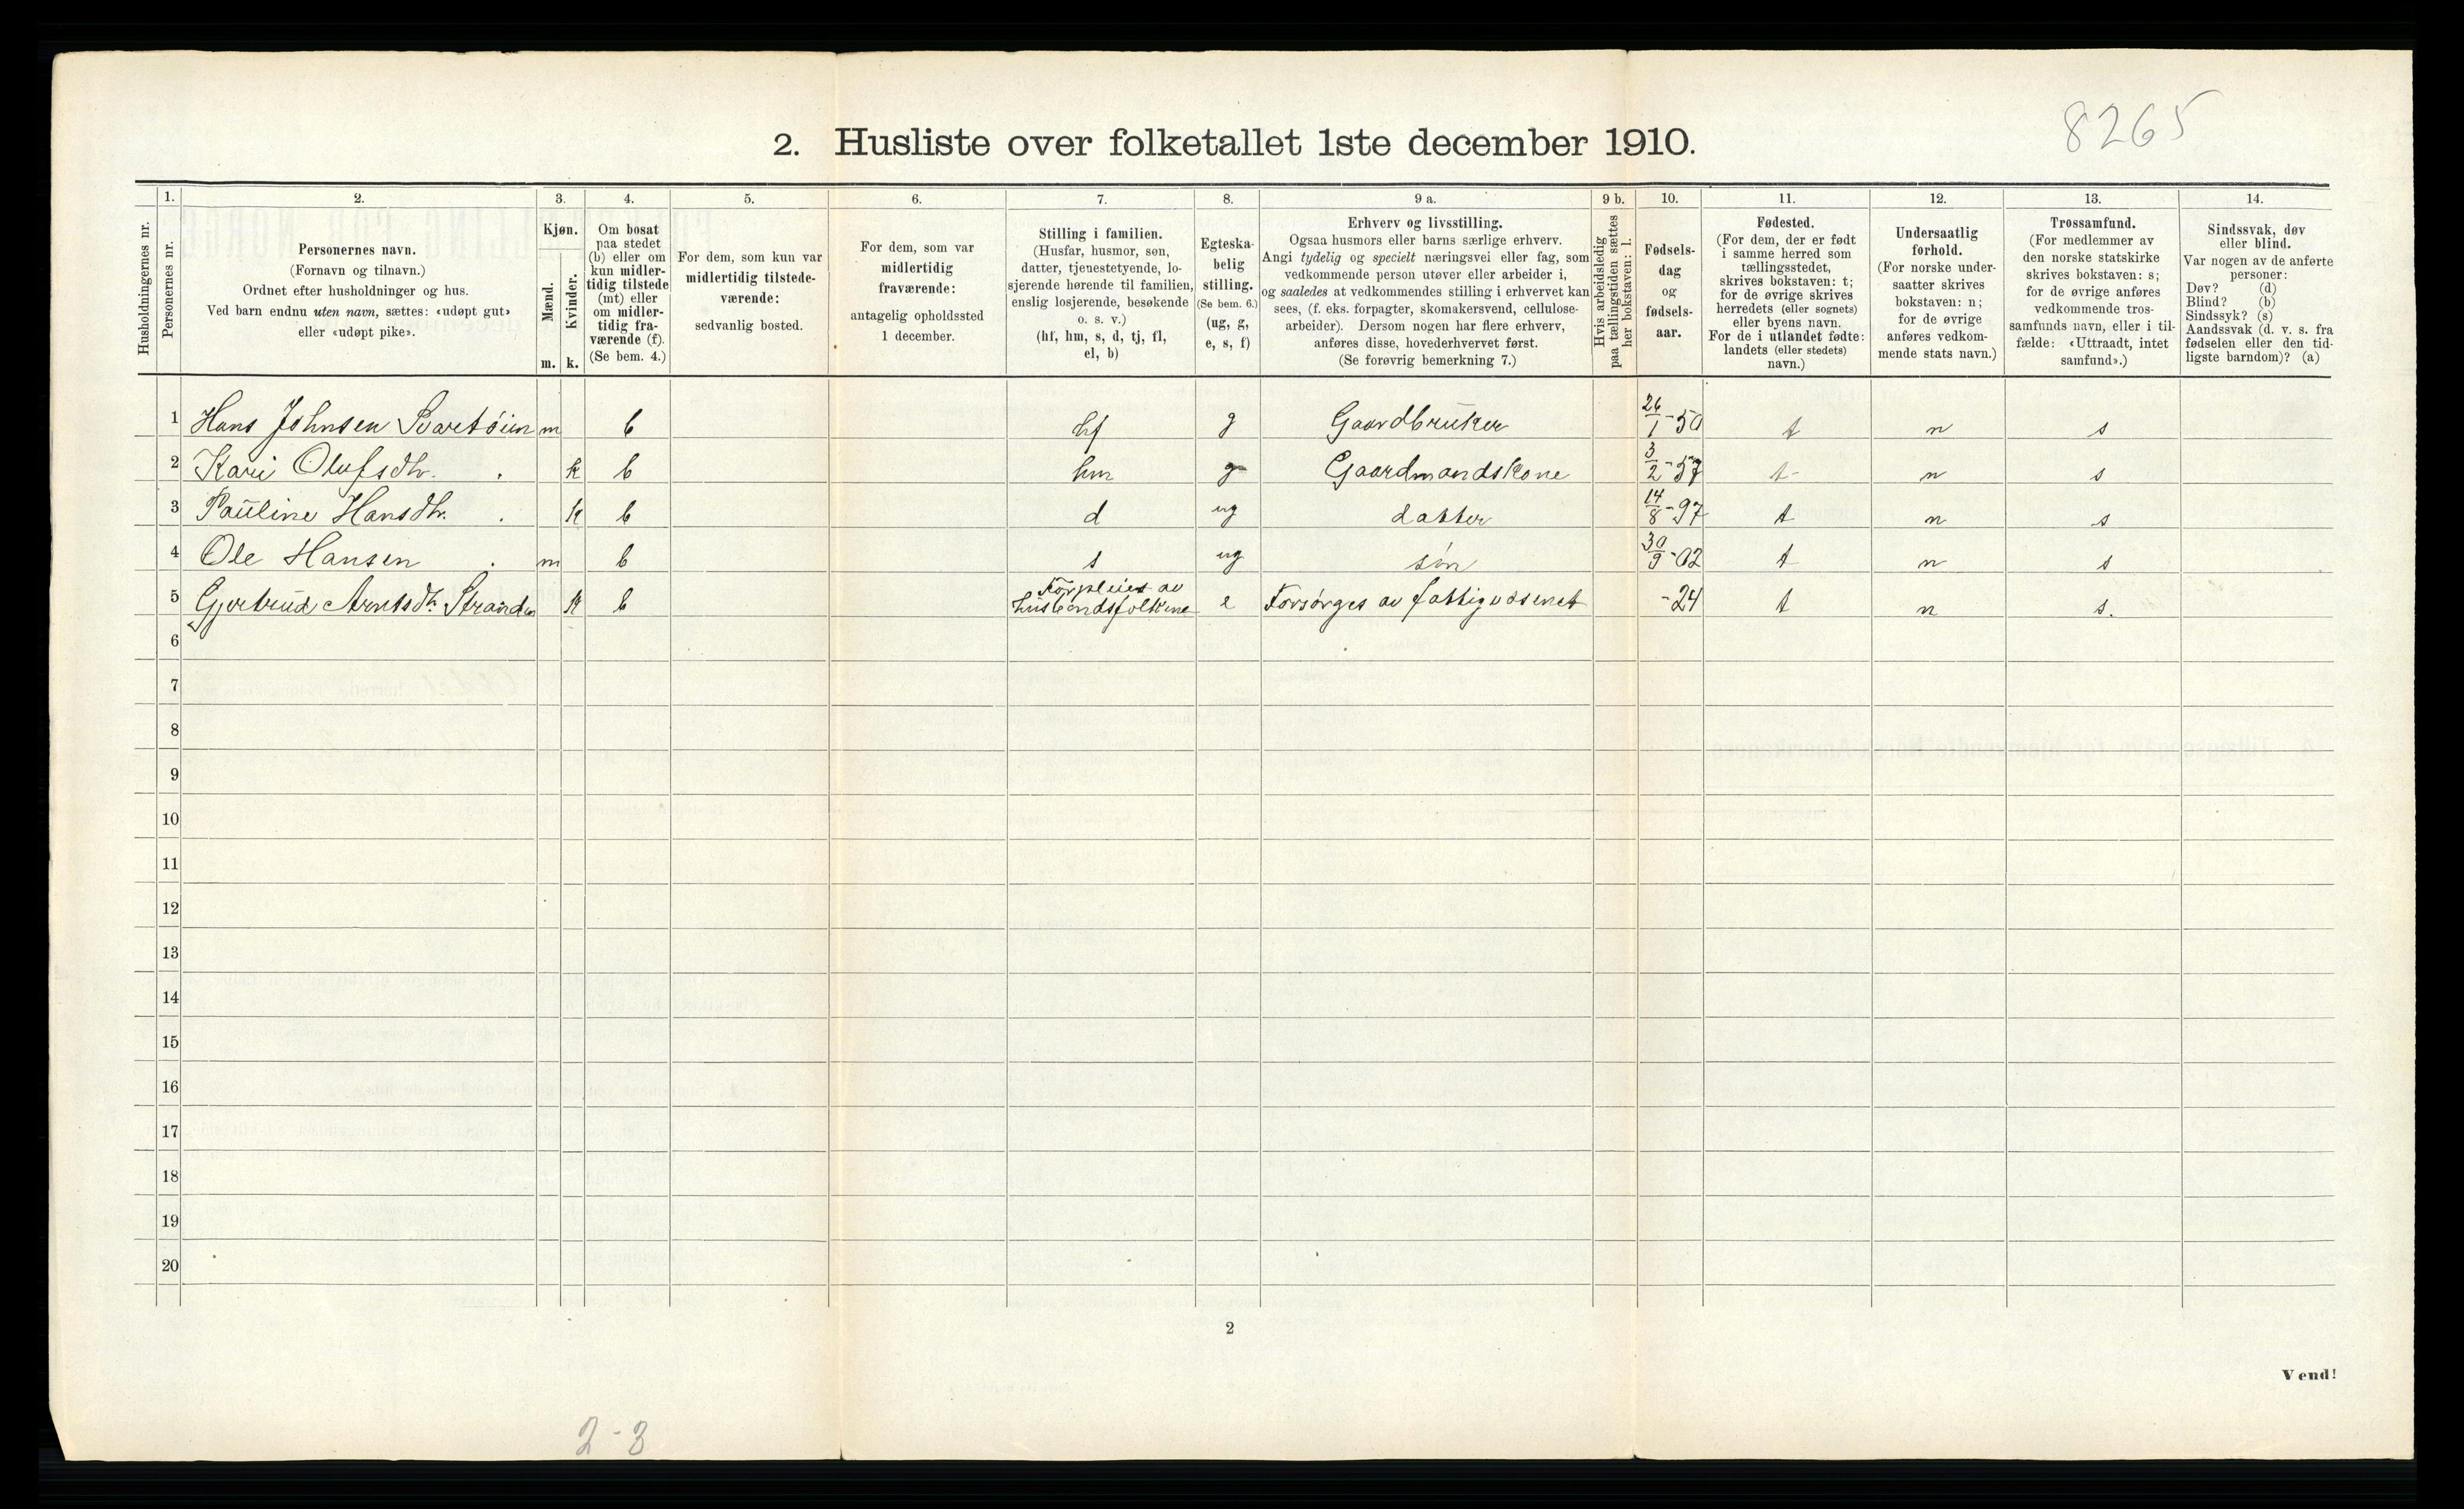 8265
2. Husliste over folketallet 1ste december 1910.
Husholdningernes nr.
1.
Personernes nr.
2.
Personernes navn.
(Fornavn og tilnavn.)
Ordnet efter husholdninger og hus.
Ved barn endnu uten navn, sættes: «udøpt gut»
eller «udøpt pike».
3.
Kjøn.
Mænd.
Kvinder.
m. k.
4.
Om bosat
paa stedet
(b) eller om
kun midler-
tidig tilstede
(mt) eller
om midler-
tidig fra-
værende (f).
(Se bem. 4.)
5.
For dem, som kun var
midlertidig tilstede-
værende:
sedvanlig bosted.
6.
For dem, som var
midlertidig
fraværende:
antagelig opholdssted
1 december.
7.
Stilling i familien.
(Husfar, husmor, søn,
datter, tjenestetyende, lo-
sjerende hørende til familien,
enslig losjerende, besøkende
o. s. v.)
(hf, hm, s, d, tj, fl,
el, b)
8.
Egteska-
belig
stilling.
(Se bem. 6.)
(ug, g,
e, s, f)
9 a.
Erhverv og livsstilling.
Ogsaa husmors eller barns særlige erhverv.
Angi tydelig og specielt næringsvei eller fag, som
vedkommende person utøver eller arbeider i,
og saaledes at vedkommendes stilling i erhvervet kan
sees, (f. eks. forpagter, skomakersvend, cellulose-
arbeider). Dersom nogen har flere erhverv,
anføres disse, hovederhvervet først.
(Se forøvrig bemerkning 7.)
9 b.
Hvis arbeidsledig
paa tællingstiden sættes
her bokstaven: l.
10.
Fødsels-
dag
og
fødsels-
aar.
11.
Fødested.
(For dem, der er født
i samme herred som
tællingsstedet,
skrives bokstaven: t;
for de øvrige skrives
herredets (eller sognets)
eller byens navn.
For de i utlandet fødte:
landets (eller stedets)
navn.)
12.
Undersaatlig
forhold.
(For norske under-
saatter skrives
bokstaven: n;
for de øvrige
anføres vedkom-
mende stats navn.)
13.
Trossamfund.
(For medlemmer av
den norske statskirke
skrives bokstaven: s;
for de øvrige anføres
vedkommende tros-
samfunds navn, eller i til-
fælde: «Uttraadt, intet
samfund».)
14.
Sindssvak, døv
eller blind.
Var nogen av de anførte
personer:
Døv? (d)
Blind? (b)
Sindssyk? (s)
Aandssvak (d. v. s. fra
fødselen eller den tid-
ligste barndom)? (a)
1 Hans Johnsen Svartøien m b hf g Gaardbruker 26/1-50 t n s
2 Kari Olufsdtr. k b hm g Gaardmandskone 3/2-57 t n s
3 Pauline Hansdtr. k b d ug datter 14/8-97 t n s
4 Ole Hansen m b s ug søn 30/9-02 t n s
5 Gjertrud Arntsdtr. k b Forpleies av
husbondsfolkene e Forsørges av fattigvæsenet -24 t n s.
6
7
8
9
10
11
12
13
14
15
16
17
18
19
20
2
Vend!
2-3